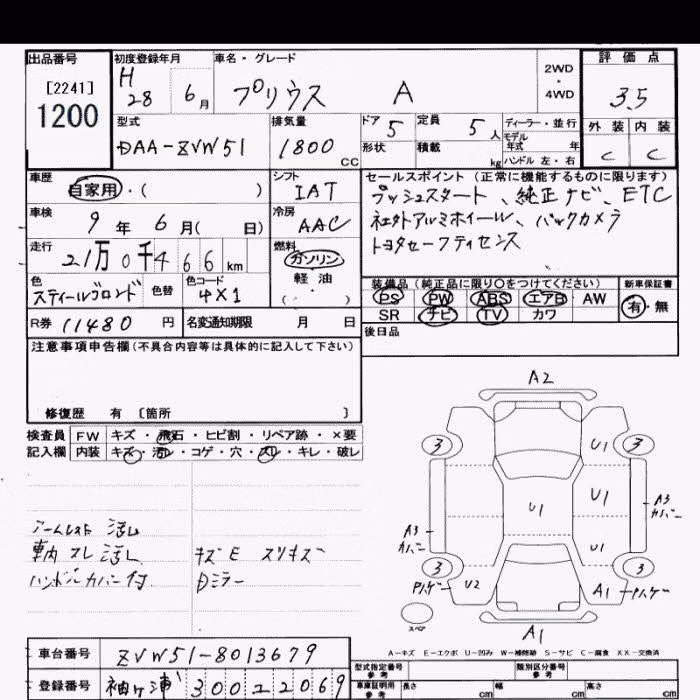 出品番号 初度登録年月 車名・グレード 2WD・4WD 評価点
[2241] 1200 H28 6月 プリウス A 3.5
型式 排気量 ドア 定員 ディーラー・並行 外装 内装
DAA-ZVW51 1800CC 5 5人 モデル年式 年 C C
形状 積載 kg ハンドル 左・右
車歴 シフト セールスポイント(正常に機能するものに限ります)
自家用・( ) IAT プッシュスタート、純正ナビ、ETC
車検 冷房 社外アルミホイール、バックカメラ
9年6月( 日) AAC トヨタセーフティセンス
走行 燃料
21万0千466km ガソリン
色 色替 色コード 軽油 装備品(純正品に限り○をつけてください) 新車保証書
スティールブロンド 4X1 ( ) PS PW ABS エアB AW 有・無
SR ナビ TV カワ
R券 11480円 名変通知期限 月 日 後日品
注意事項申告欄(不具合内容等は具体的に記入して下さい)
修復歴 有 [箇所 ]
検査員 FW キズ・飛石・ヒビ割・リペア跡・×要
記入欄 内装 キズ・汚レ・コゲ・穴・スレ・キレ・破レ
アームレスト 汚レ
車内 スレ 汚レ キズE スリキズ
ハンドルカバー付 Dミラー
A2
3 U1 3
U1 U1
A3 カバー A3 カバー
U1
3 3
Pハゲー U2 A1 Pハゲー
スペア
A1
A-キズ E-エクボ U-凹み W-補修跡 S-サビ C-腐食 XX-交換済
車台番号 ZVW51-8013679
型式指定番号 参考 類別区分番号 参考
登録番号 袖ヶ浦 300 2 2069
車庫証明用 参考 長さ cm 幅 cm 高さ cm